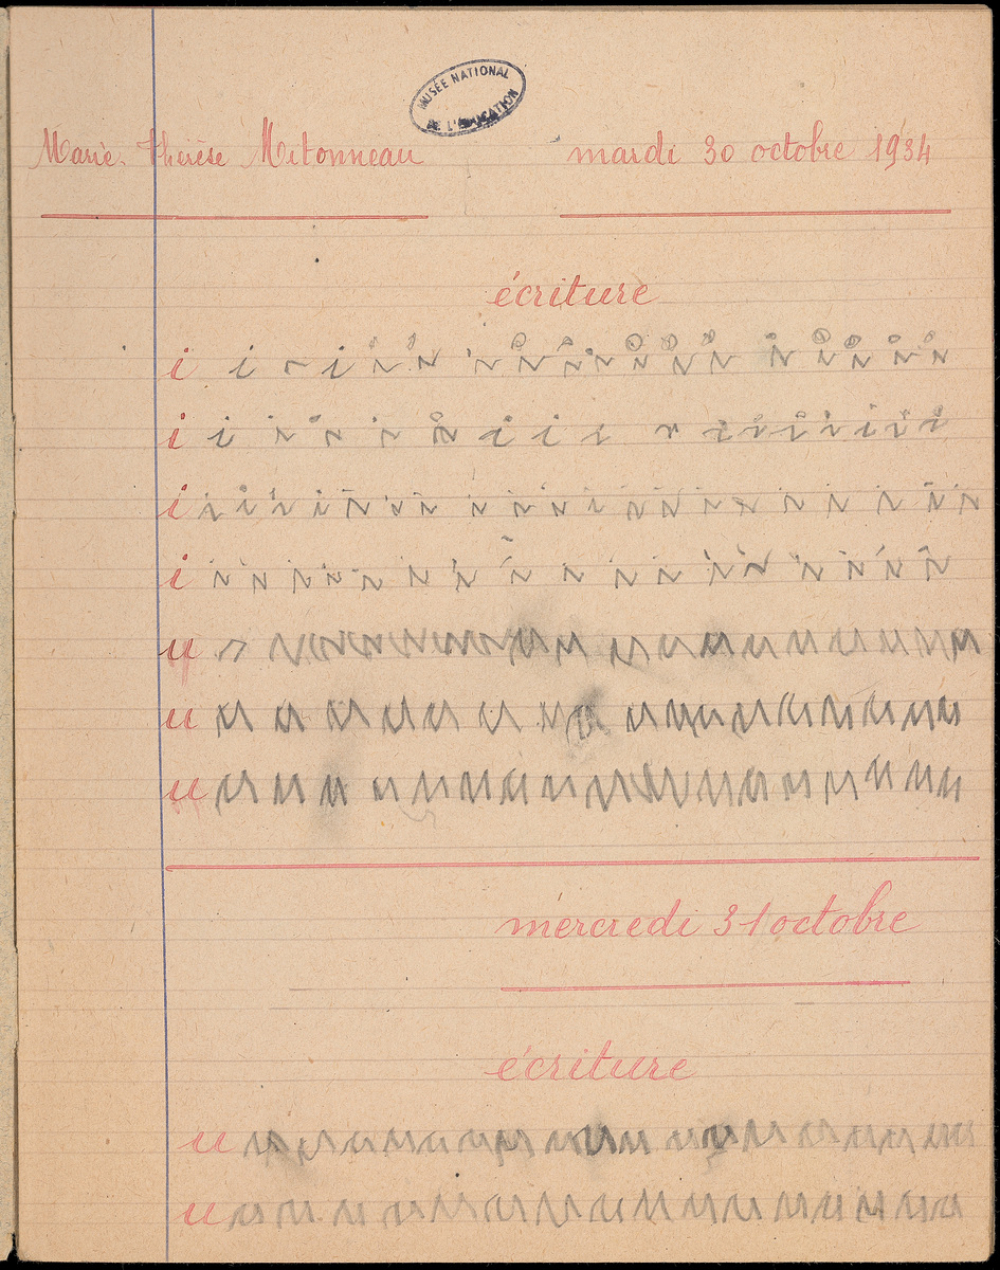 MUSÉE NATIONAL
DE L'ÉDUCATION
Marie-Thérèse Mitonneau mardi 30 octobre 1934
écriture
i i i i i i i i i i i i i i i i i i
i i i i i i i i i i i i i i i i i
i i i i i i i i i i i i i i i i i i i i
i i i i i i i i i i i i i i i i i i
u u u u u u u u u u u u u u u u u
u u u u u u u u u u u u u u u u
u u u u u u u u u u u u u u u u u
mercredi 31 octobre
écriture
u u u u u u u u u u u u u u u u
u u u u u u u u u u u u u u u u